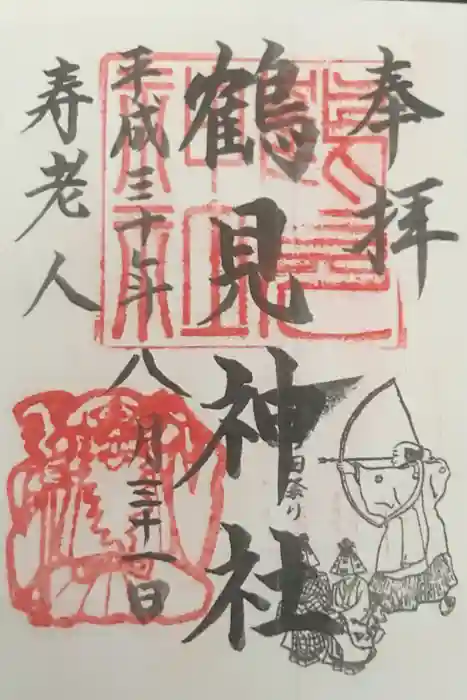 奉拝
鶴見神社
平成三十年八月三十一日
寿老人